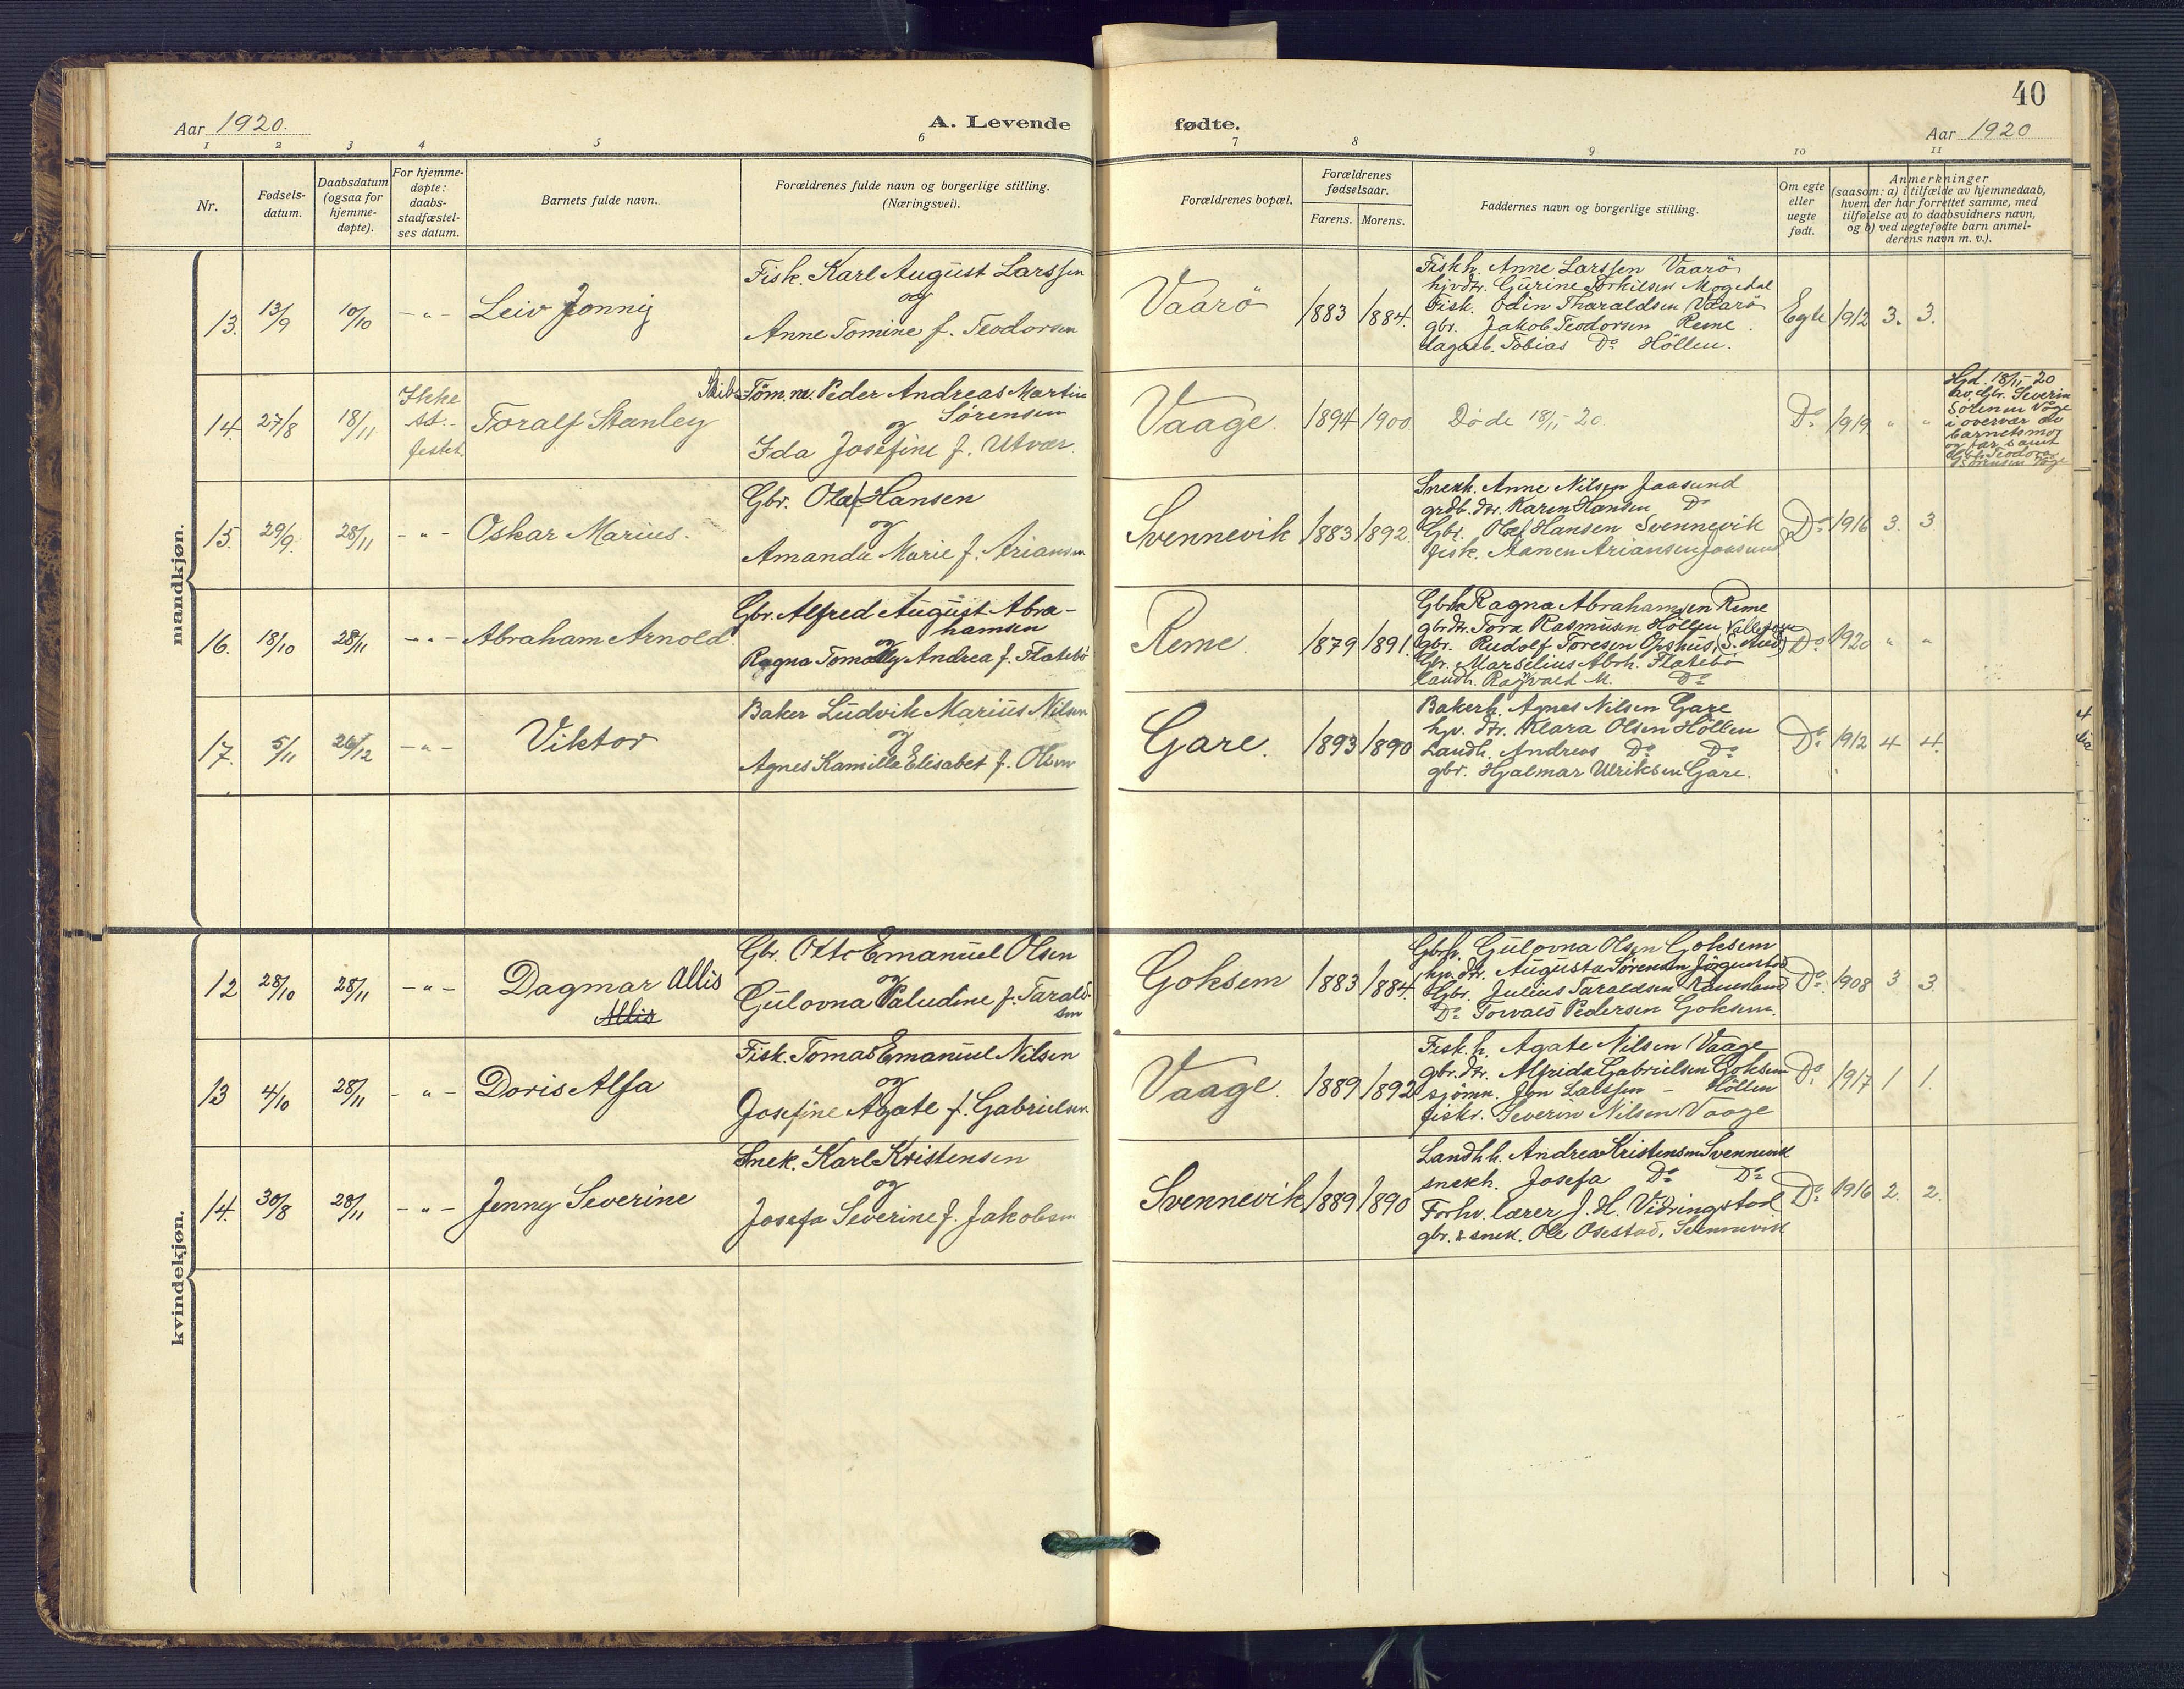 40
Aar 1920.
A. Levende
fødte.
Aar 1920
1 2 3 4 5 6 7 8 9 10 11
Nr.
Fødsels-
datum.
Daabsdatum
(ogsaa for
hjemme-
døpte).
For hjemme-
døpte:
daabs-
stadfæstel-
ses datum.
Barnets fulde navn.
Forældrenes fulde navn og borgerlige stilling.
(Næringsvei).
Forældrenes bopæl.
Forældrenes
fødselsaar.
Farens. Morens.
Faddernes navn og borgerlige stilling.
Om egte
eller
uegte
født.
Anmerkninger
(saasom: a) i tilfælde av hjemmedaab,
hvem der har forrettet samme, med
tilføielse av to daabsvidners navn,
og b) ved uegtefødte barn anmel-
derens navn m. v.).
mandkjøn.
13. 13/9 10/10 - " - Leiv Jonny
Fisk. Karl August Larssen
og
Anne Tomine f. Teodorsen
Vaarö 1883 1884.
Fiskh. Anne Larssen Vaarö
hjvdtr. Gurine Torkilsen Mogedal
Fisk. Odin Tharaldsen Vaarö
gbr. Jakob Teodorsen Reme.
dagarb. Tobias Do Höllen.
Egte 1912 3. 3.
14. 27/8 18/11
Ikke
st.-
festet.
Toralf Stanley
Skibs-Töm.m. Peder Andreas Martin
Sørensen
og
Ida Josefine f. Utvær.
Vaage. 1894 1900
Døde 18/11-20.
Do 1919 " "
Hjd. 18/11-20
av. Gbr. Severin
Sörensen Våge
i overvær av
barnetsmor
og far samt
Gbr. Teodor
Sörensen Våge
15. 29/9. 28/11 - " - Oskar Marius.
Gbr. Olaf Hansen
og
Amanda Marie f. Ariansen
Svennevik 1883 1892.
Snekh. Anne Nilsen Jaasund
grdb. dtr. Karen Hansen Do
Gbr. Olaf Hansen Svennevik
fisk. Aanen Ariansen Jaasund
Do 1916 3. 3
16. 18/10 28/11 - " - Abraham Arnold
Gbr. Alfred August Abra-
hamsen
og
Ragna Tomally Andrea f. Flatebö
Reme. 1879 1891.
Gbrh. Ragna Abrahamsen Reme
gbrdtr. Tora Rasmusen Höllen
gbr. Rudolf Toresen Opshus, (S. Aud)
Gbr. Marselius Abrh. Flatebö
Landh. Ragvald M. Do
Do 1920 " "
17. 5/11 26/12 - " - Viktor
Baker Ludvik Marius Nilsen
og
Agnes Kamilla Elisabet f. Olsen
Gare. 1893 1890
Bakerh. Agnes Nilsen Gare
hjv. dtr. Klara Olsen Höllen
Landh. Andreas Do Do
gbr. Hjalmar Ulriksen Gare.
Do 1912 4 4.
kvindekjøn.
12 28/10 28/11 - " - Dagmar Allis
Allis
Gbr. Otto Emanuel Olsen
og
Gulovna Paludine f. Tarald-
sen
Goksem 1883 1884.
Gbrh. Gulovna Olsen Goksem
hjv. dtr. Augusta Sørensen Jörgenstad
Gbr. Julius Taraldsen Ranesland
Do Torvald Pedersen Goksem.
Do 1908 3 3.
13 4/10 28/11 - " - Doris Alfa
Fisk. Tomas Emanuel Nilsen
og
Josefine Agate f. Gabrielsen
Vaage. 1889 1892
Fisk. h. Agate Nilsen Vaage
gbr. dtr. Alfrida Gabrielsen Goksem
sjömn. Jon Larssen - Höllen
fiskr. Severin Nilsen Vaage
Do 1917 1 1.
14. 30/8 28/11 - " - Jenny Severine
Snek. Karl Kristensen
og
Josefa Severine f. Jakobsen
Svennevik 1889 1890
Landhh. Andrea Kristensen Svennevik
snekh. Josefa Do Do
Forhv. lærer J. H. Vidringstad
gbr. & snek. Ole Osestad, Svennevik
Do 1916 2. 2.